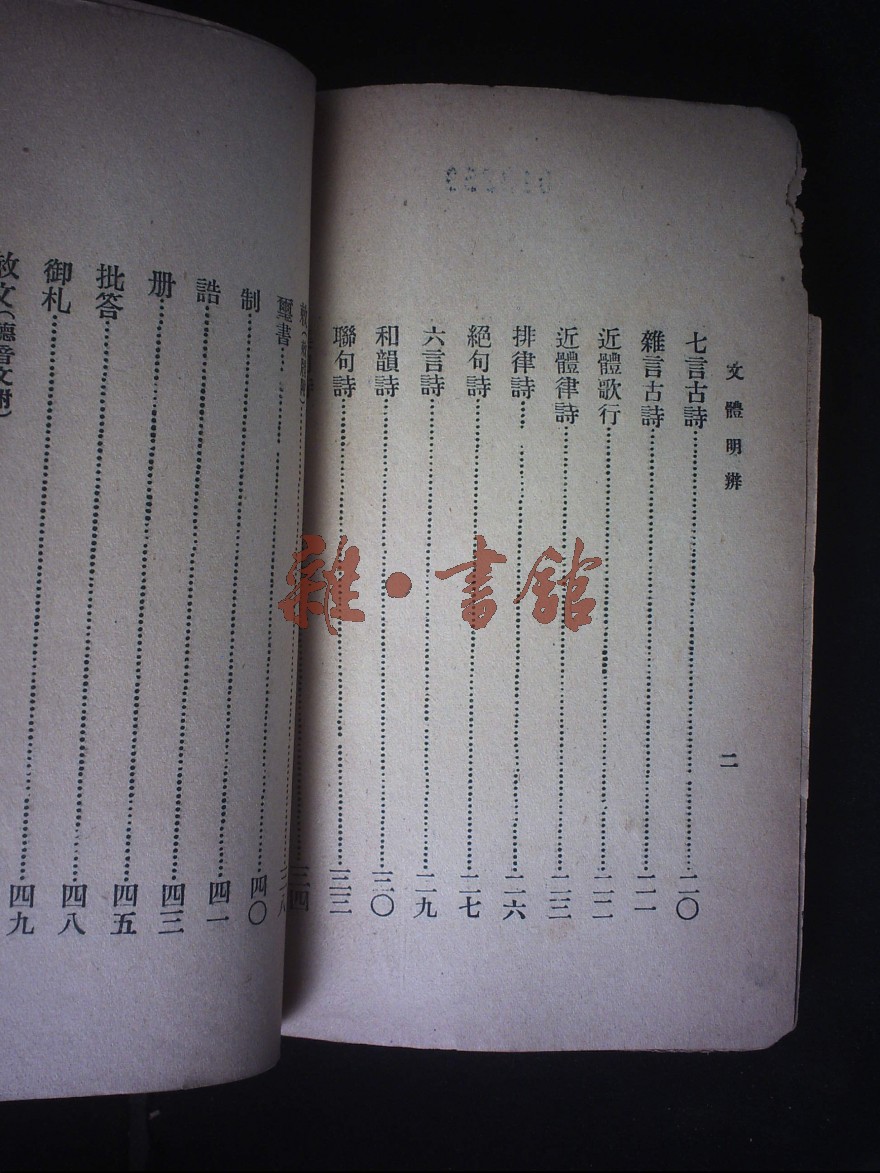 文體明辨
二
七言古詩……二〇
雜言古詩……二一
近體歌行……二二
近體律詩……二三
排律詩……二六
絕句詩……二七
六言詩……二九
和韻詩……三〇
聯句詩……三三
三四
璽書……三八
制……四〇
誥……四一
册……四三
批答……四五
御札……四八
赦文(德音文附)
四九
雜·書館